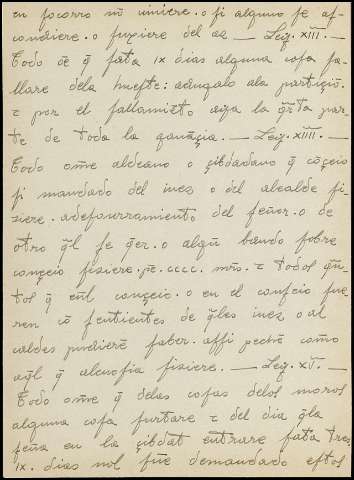 en socorro nō uiniere. o si alguno se as-
condiere. o fuxiere del aa — Ley. XIII. —
Todo oē q̄ fata ix dias alguna cosa fa-
llare dela hueste: adugalo ala particiō.
τ por el fallamiēto aya la q̄rta par-
te de toda la ganācia. — Ley. XIIII. —
Todo ome aldeano o çibdadano q̄ cōceio
si mandado del iuez o del alcalde fi-
ziere. a desonrramiento del señor. o de
otro q̄l se q̄er. o algū bando sobre
conceio fiziere. pē. cccc. mrs. τ todos q̄n-
tos q̄ enl conçeio. o en el conseio fue-
ren cōsentientes de q̄les iuez o al
caldes pudierē saber. assi pechē como
aq̄l q̄ aleuosia fiziere. — Ley. XV. —
Todo ome q̄ delas cosas delos moros
alguna cosa furtare τ del dia q̄ la
seña en la çibdat entrare fata tres
ix. dias nol fue demandado estos